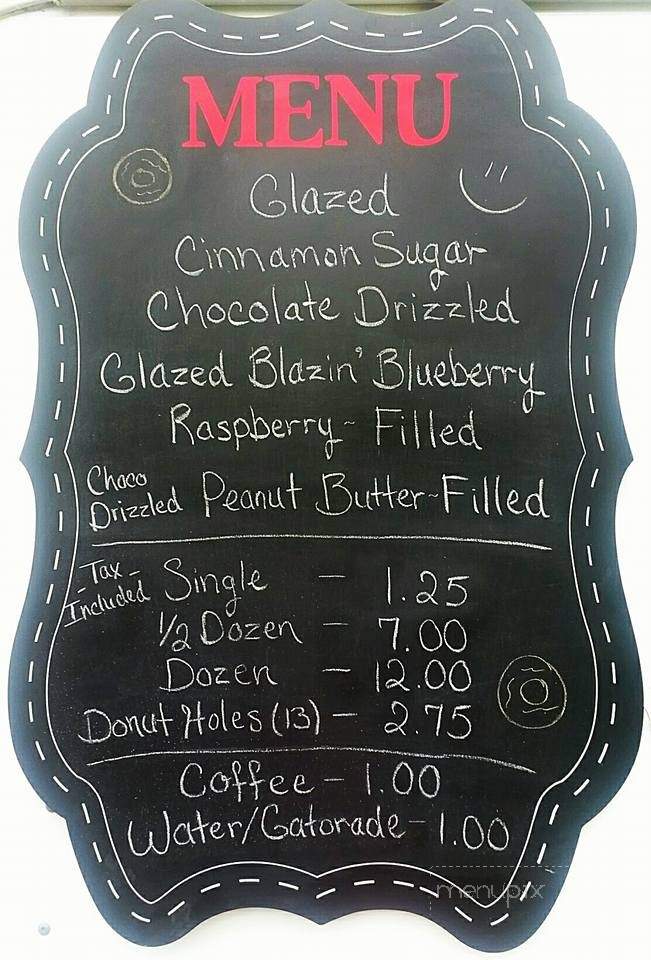 MENU
Glazed
Cinnamon Sugar
Chocolate Drizzled
Glazed Blazin' Blueberry
Raspberry- Filled
Choco Drizzled Peanut Butter-Filled
-Tax- Included Single - 1.25
1/2 Dozen - 7.00
Dozen - 12.00
Donut Holes (13) - 2.75
Coffee - 1.00
Water/Gatorade - 1.00
menupix